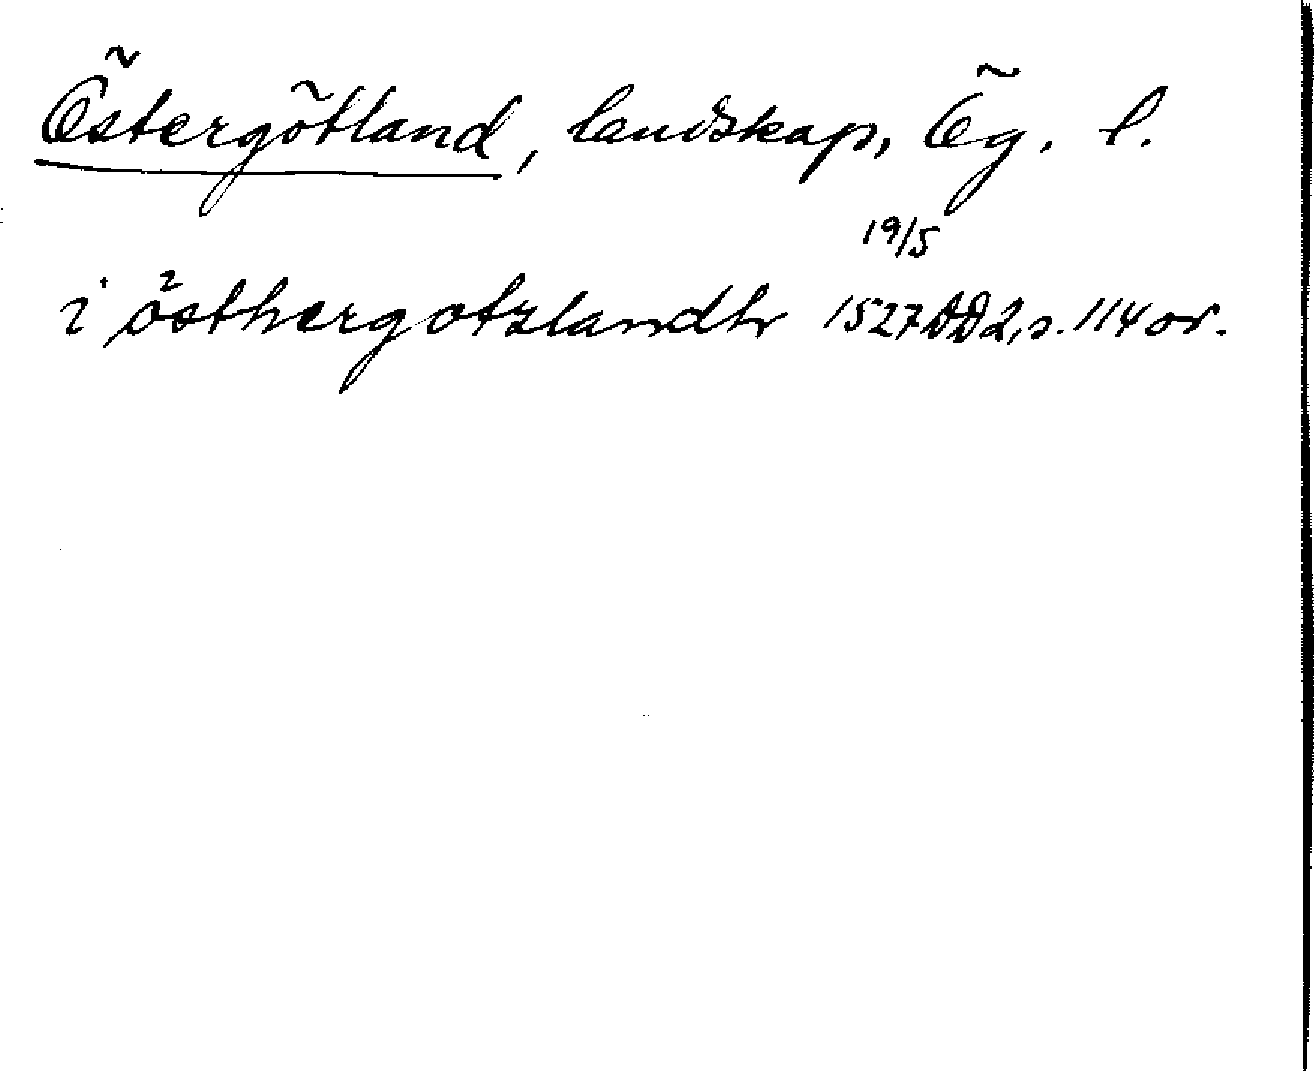 Östergötland, landskap, Ög. l.
19/5
i östhergotzlandh 1527 DD2, s. 114 or.